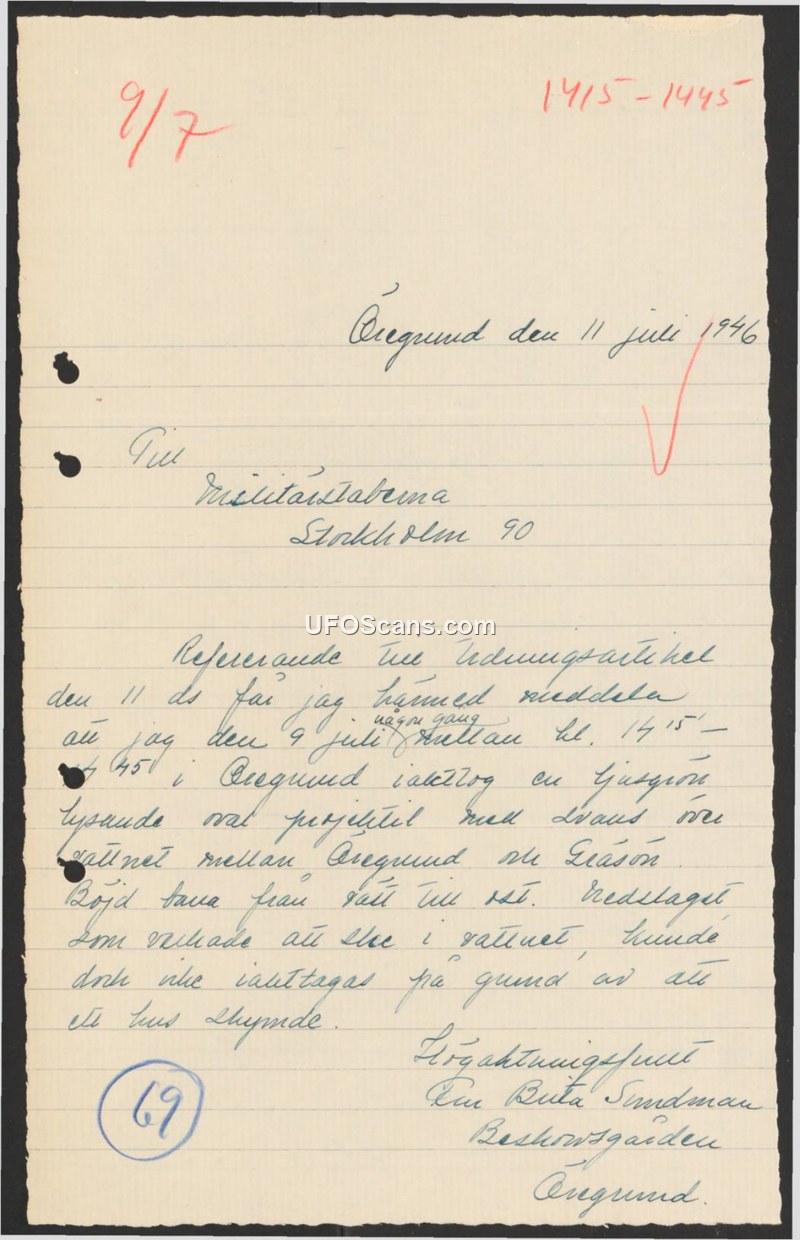 9/7
1415-1445
Öregrund den 11 juli 1946
Till
Militärstaberna
Stockholm 90
UFOScans.com
Refererande till tidningsartikel
den 11 ds får jag härmed meddela
att jag den 9 juli någon gång mellan kl. 14 15 –
14 45 i Öregrund iakttog en ljusgrön
lysande oval projektil med svans över
vattnet mellan Öregrund och Gräsön.
Böjd bana från väst till ost. Nedslaget,
som verkade att ske i vattnet, kunde
dock icke iakttagas på grund av att
ett hus skymde.
Högaktningsfullt
Fru Brita Sundman
69
Öregrund.